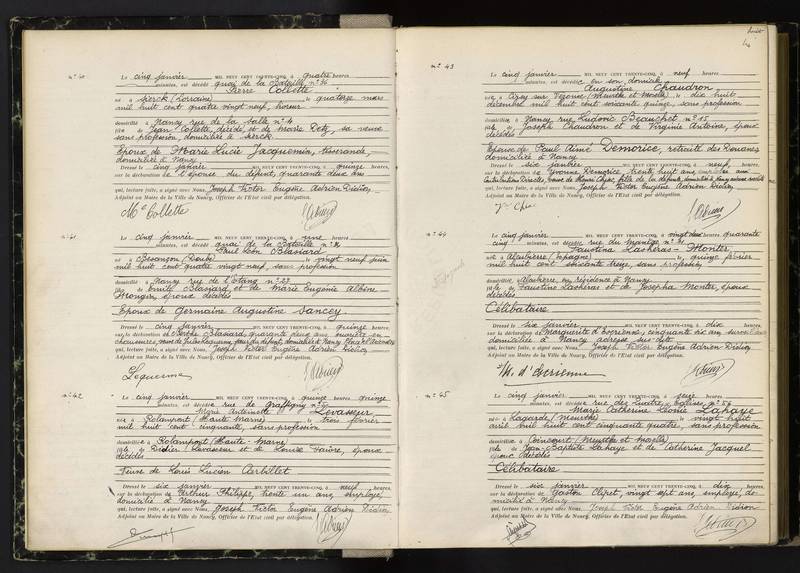 n° 40
Le cinq janvier MIL NEUF CENT TRENTE-CINQ, à quatre heures
minutes, est décédé quai de la Bataille n° 36
Pierre Collette
né à Sierck (Lorraine) le quatorze mars
mil huit cent quatre vingt neuf,
domicilié à Nancy rue de la Salle n° 4
fils de Jean Collette, décédé et de Marie Detz, sa veuve
sans profession, domiciliée à Sierck.
Epoux de Marie Lucie Jacquemin, tisserande,
domiciliée à Nancy
Dressé le cinq janvier MIL NEUF CENT TRENTE-CINQ, à quinze heures,
sur la déclaration de l'épouse du défunt, quarante deux ans
qui, lecture faite, a signé avec Nous, Joseph Victor Eugène Adrien Didion,
Adjoint au Maire de la Ville de Nancy, Officier de l'Etat civil par délégation.
Me Collette
n° 41
Le cinq janvier MIL NEUF CENT TRENTE-CINQ, à une heure
minutes, est décédé quai de la Bataille n°
Paul Léon Blassard
né à Besançon (Doubs) le vingt neuf juin
mil huit cent quatre vingt neuf, sans profession
domicilié à Nancy rue de l'Etang n° 27
fils de Emile Blassard et de Marie Eugénie Albine
Mongin, époux décédés
Epoux de Germaine Augustine Sancey.
Dressé le cinq janvier MIL NEUF CENT TRENTE-CINQ, à quinze heures,
sur la déclaration de Berthe Blassard, quarante deux ans, ouvrière en
chaussures,
qui, lecture faite, a signé avec Nous, Joseph Victor Eugène Adrien Didion,
Adjoint au Maire de la Ville de Nancy, Officier de l'Etat civil par délégation.
n° 42
Le cinq janvier MIL NEUF CENT TRENTE-CINQ, à quinze heures quinze
minutes, est décédée rue de Graffigny n°
Marie Antoinette Levasseur
née à Rolampont (Haute Marne) le trois février
mil huit cent cinquante, sans profession
domiciliée à Rolampont (Haute-Marne)
fille de Didier Levasseur et de Louise Faivre, époux
décédés
Veuve de Louis Lucien Aerbillet
Dressé le six janvier MIL NEUF CENT TRENTE-CINQ, à neuf heures,
sur la déclaration de Arthur Philippe, trente un ans, employé,
domicilié à Nancy
qui, lecture faite, a signé avec Nous, Joseph Victor Eugène Adrien Didion
Adjoint au Maire de la Ville de Nancy, Officier de l'Etat civil par délégation.
n° 43
Le cinq janvier MIL NEUF CENT TRENTE-CINQ, à neuf heures
minutes, est décédée en son domicile
Augustine Chaudron
née à (Meurthe et Moselle) le dix huit
décembre mil huit cent soixante quinze, sans profession
domiciliée à Nancy rue Ludovic Beauchet n° 15
fille de Joseph Chaudron et de Virginie Antoine, époux
décédés
Epouse de Paul Aimé Demorice, retraité des Douanes
domicilié à Nancy
Dressé le six janvier MIL NEUF CENT TRENTE-CINQ, à neuf heures,
sur la déclaration de Yvonne Demorice, trente huit ans, employée aux
Contributions Directes,
qui, lecture faite, a signé avec Nous, Joseph Victor Eugène Adrien Didion
Adjoint au Maire de la Ville de Nancy, Officier de l'Etat civil par délégation.
n° 44
Le cinq janvier MIL NEUF CENT TRENTE-CINQ, à vingt deux quarante
cinq minutes, est décédée rue du Manège n°
Faustina Lasheras-Monter
née à Alcubierre (Espagne) le quinze février
mil huit cent soixante treize, sans profession
domiciliée à Alcubierre, en résidence à Nancy
fille de Faustino Lasheras et de Josepha Monter, époux
décédés
Célibataire
Dressé le six janvier MIL NEUF CENT TRENTE-CINQ, à dix heures,
sur la déclaration de Marguerite d'Evrienne, cinquante six ans,
domiciliée à Nancy adresse sus-dite
qui, lecture faite, a signé avec Nous, Joseph Victor Eugène Adrien Didion
Adjoint au Maire de la Ville de Nancy, Officier de l'Etat civil par délégation.
n° 45
Le cinq janvier MIL NEUF CENT TRENTE-CINQ, à seize heures
minutes, est décédée rue des Quatre Eglises, n° 54
Marie Catherine Léonie Lahaye
née à Lagarde (Meurthe) le vingt huit
avril mil huit cent cinquante quatre, sans profession
domiciliée à Coincourt (Meurthe et Moselle)
fille de Jean-Baptiste Lahaye et de Catherine Jacquel
époux décédés
Célibataire
Dressé le six janvier MIL NEUF CENT TRENTE-CINQ, à dix heures,
sur la déclaration de Gaston Clipet, vingt sept ans, employé, do-
micilié à Nancy
qui, lecture faite, a signé avec Nous, Joseph Victor Eugène Adrien Didion
Adjoint au Maire de la Ville de Nancy, Officier de l'Etat civil par délégation.